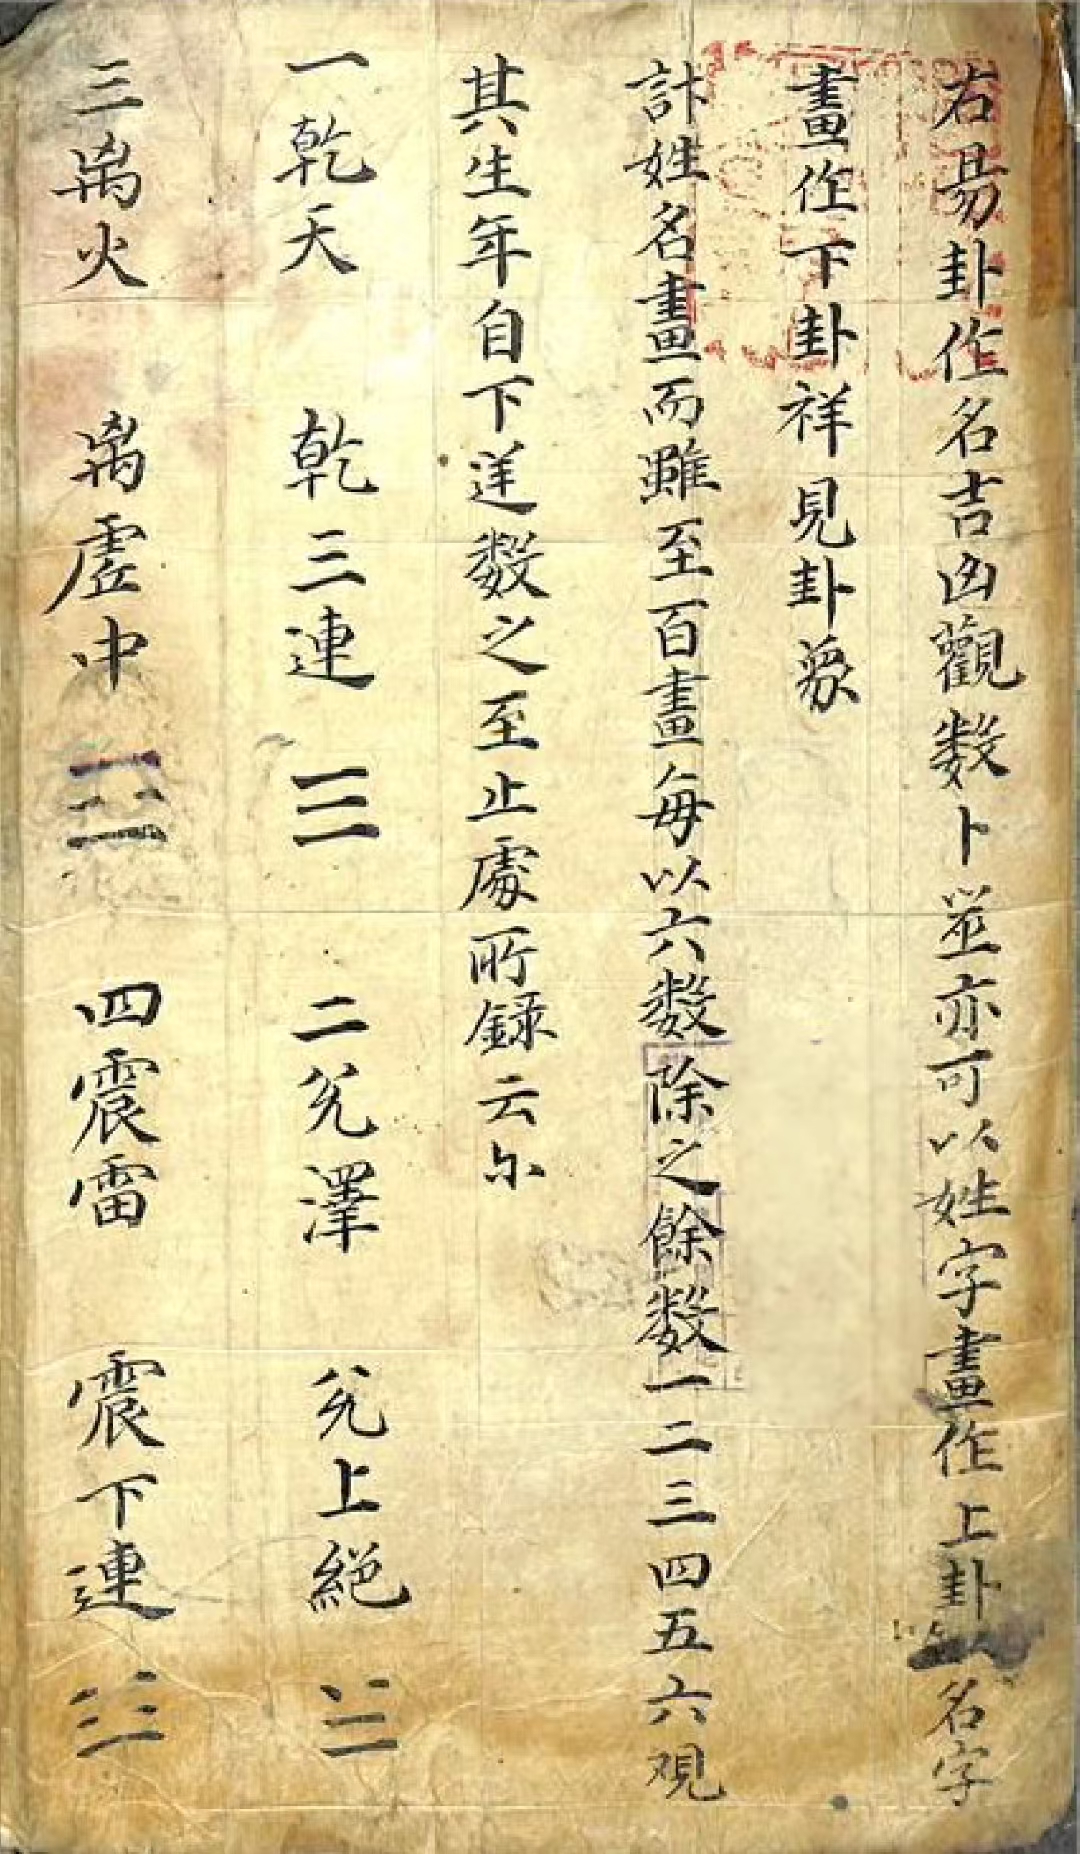 右易卦作名吉凶觀数卜筮亦可以姓字畫作上卦以名字
畫作下卦祥見卦象
計姓名畫而雖至百畫每以六数除之餘数一二三四五六觀
其生年自下逆数之至止處所錄云尔
一乾天 乾三連 ☰ 二兊澤 兊上絕 ☱
三离火 离虛中 ☲ 四震雷 震下連 ☳